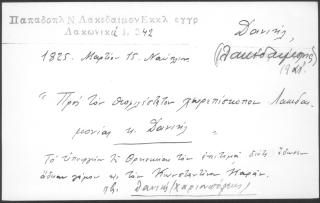 Παπαδοπλ Ν Λακεδαιμον Εκκλ εγγρ
Λακωνικά 1. 342
Δανιήλ,
(Λακεδαιμονίας)
1825. Μαρτίου 15. Ναύπλιον
"Πρὸς τὸν θεοφιλέστατον χωρεπίσκοπον Λακεδαι-
μονίας κ. Δανιήλ"
Τὸ ὑπουργεῖον τῆς Θρησκείας τὸν ἐπιτιμᾷ διότι ἔδωσεν
ἄδειαν γάμου εἰς τὸν Κωνσταντῖνον
Δανιήλ